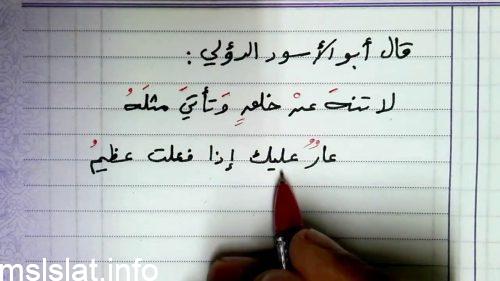 قال أبو الأسود الدؤلي :
لا تنهَ عنْ خلقٍ وَتأتيَ مثلَهُ
عارٌ عليك إذا فعلت عظيمُ
mslslat.info